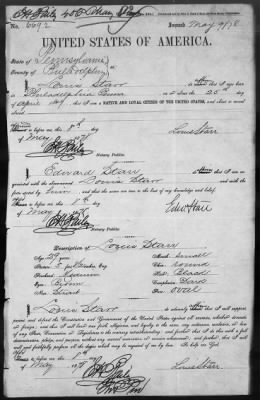 No. 6692 Issued May 9/78
UNITED STATES OF AMERICA.
State of Pennsylvania
County of Philadelphia
I, Louis Starr do affirm that I was born
in Philadelphia Penna on the 25th day
of April 1849 that I am a NATIVE AND LOYAL CITIZEN OF THE UNITED STATES, and about to travel
abroad.
to before me this 8th day Louis Starr
of May 1878
Notary Public.
I, Edward Starr do that I am
acquainted with the above-named Louis Starr and
with the facts above stated by him and that the same are true to the best of my knowledge and belief.
to before me this 8th day Edw Starr
of May 1878
Notary Public.
Description of Louis Starr
Age: 29 years Mouth: small
Stature: 5 feet inches, Eng. Chin: round
Forehead: Medium Hair: Black
Eyes: Brown Complexion: Dark
Nose: Face: Oval
I, Louis Starr do solemnly that I will support,
protect and defend the Constitution and Government of the United States against all enemies, whether domestic
or foreign; and that I will bear true faith, allegiance, and loyalty to the same, any ordinance, resolution, or law
of any State, Convention, or Legislature to the contrary notwithstanding; and further, that I do this with a full
determination, pledge, and purpose, without any mental reservation or evasion whatsoever; and further, that I will
well and faithfully perform all the duties which may be required of me by law. So help me God.
to before me this 8th day
of May 1878 Louis Starr